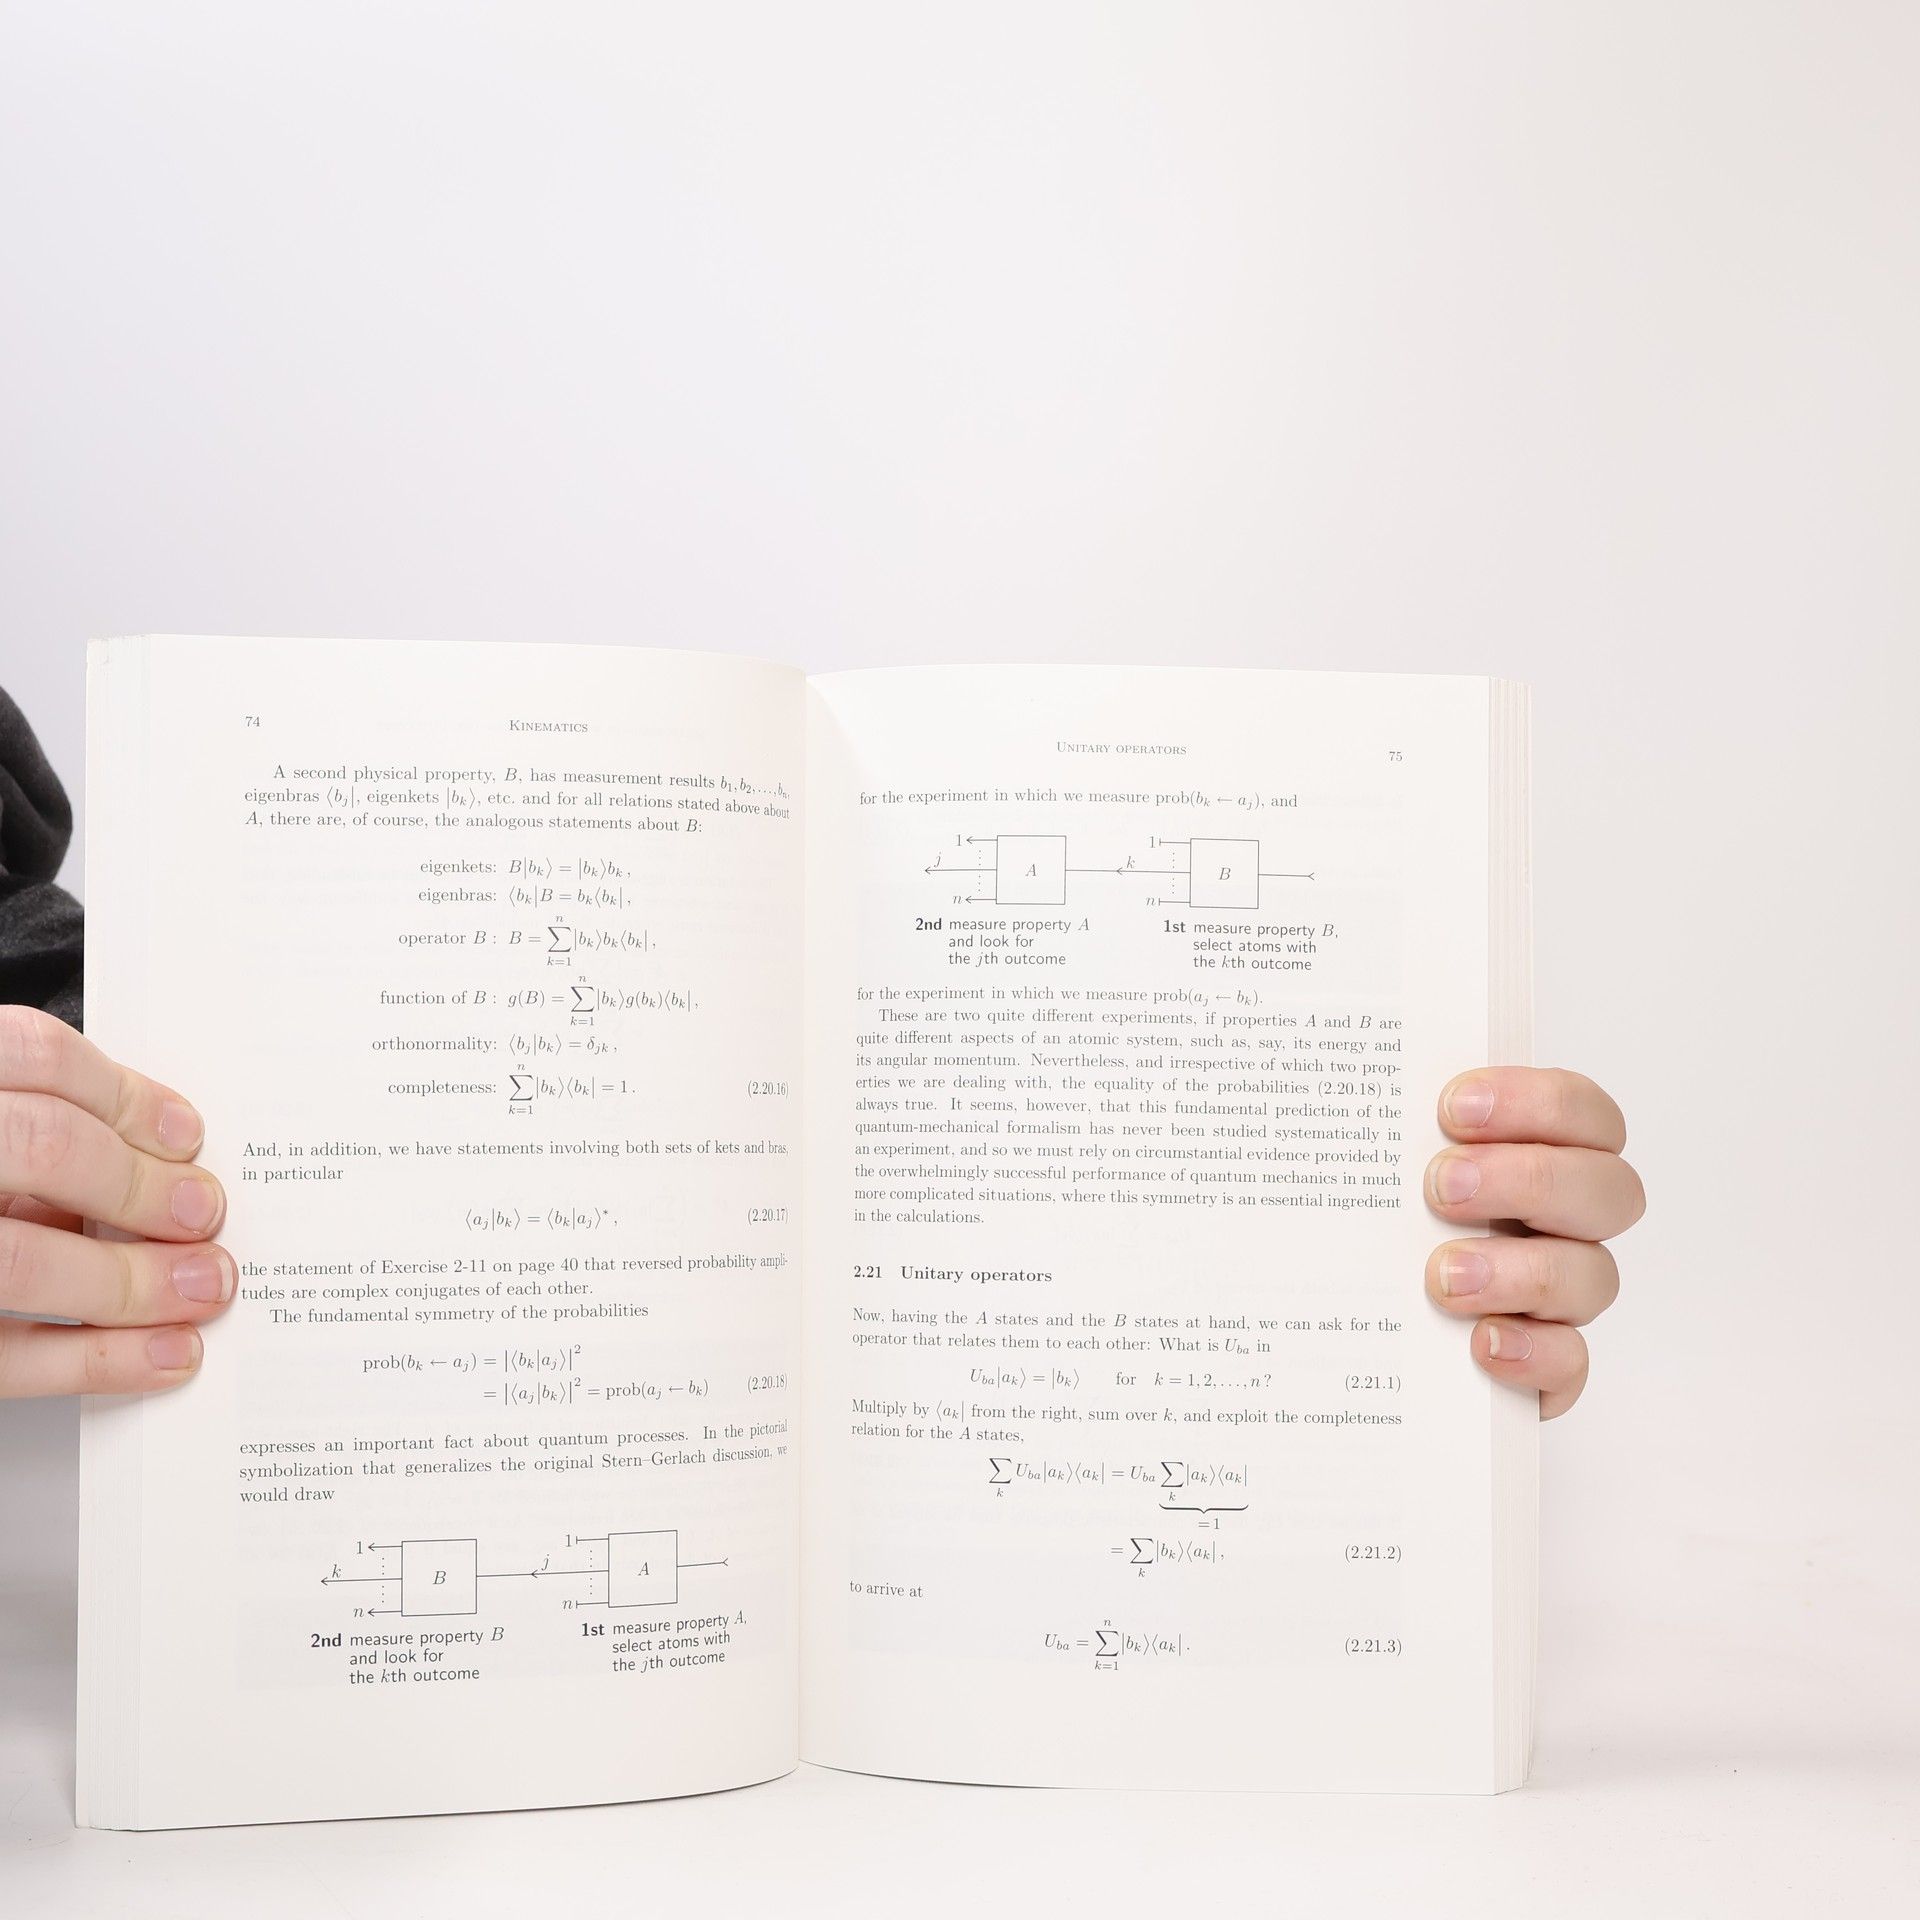 74
KINEMATICS
A second physical property, B, has measurement results b₁, b₂, …, bₙ,
eigenbras ⟨bⱼ|, eigenkets |bₖ⟩, etc. and for all relations stated above about
A, there are, of course, the analogous statements about B:
eigenkets: B|bₖ⟩ = |bₖ⟩bₖ ,
eigenbras: ⟨bₖ|B = bₖ⟨bₖ| ,
operator B : B = ∑ₖ₌₁ⁿ |bₖ⟩bₖ⟨bₖ| ,
function of B : g(B) = ∑ₖ₌₁ⁿ |bₖ⟩g(bₖ)⟨bₖ| ,
orthonormality: ⟨bⱼ|bₖ⟩ = δⱼₖ ,
completeness: ∑ₖ₌₁ⁿ |bₖ⟩⟨bₖ| = 1 . (2.20.16)
And, in addition, we have statements involving both sets of kets and bras,
in particular
⟨aⱼ|bₖ⟩ = ⟨bₖ|aⱼ⟩* , (2.20.17)
the statement of Exercise 2-11 on page 40 that reversed probability ampli-
tudes are complex conjugates of each other.
The fundamental symmetry of the probabilities
prob(bₖ ← aⱼ) = |⟨bₖ|aⱼ⟩|²
= |⟨aⱼ|bₖ⟩|² = prob(aⱼ ← bₖ) (2.20.18)
expresses an important fact about quantum processes. In the pictorial
symbolization that generalizes the original Stern–Gerlach discussion, we
would draw
1 k n B j 1 n A
2nd measure property B
and look for
the kth outcome
1st measure property A,
select atoms with
the jth outcome
UNITARY OPERATORS
75
for the experiment in which we measure prob(bₖ ← aⱼ), and
1 j n A k 1 n B
2nd measure property A
and look for
the jth outcome
1st measure property B,
select atoms with
the kth outcome
for the experiment in which we measure prob(aⱼ ← bₖ).
These are two quite different experiments, if properties A and B are
quite different aspects of an atomic system, such as, say, its energy and
its angular momentum. Nevertheless, and irrespective of which two prop-
erties we are dealing with, the equality of the probabilities (2.20.18) is
always true. It seems, however, that this fundamental prediction of the
quantum-mechanical formalism has never been studied systematically in
an experiment, and so we must rely on circumstantial evidence provided by
the overwhelmingly successful performance of quantum mechanics in much
more complicated situations, where this symmetry is an essential ingredient
in the calculations.
2.21 Unitary operators
Now, having the A states and the B states at hand, we can ask for the
operator that relates them to each other: What is U_ba in
U_ba|aₖ⟩ = |bₖ⟩ for k = 1, 2, …, n ? (2.21.1)
Multiply by ⟨aₖ| from the right, sum over k, and exploit the completeness
relation for the A states,
∑ₖ U_ba|aₖ⟩⟨aₖ| = U_ba ∑ₖ |aₖ⟩⟨aₖ|
= 1
= ∑ₖ |bₖ⟩⟨aₖ| , (2.21.2)
to arrive at
U_ba = ∑ₖ₌₁ⁿ |bₖ⟩⟨aₖ| . (2.21.3)